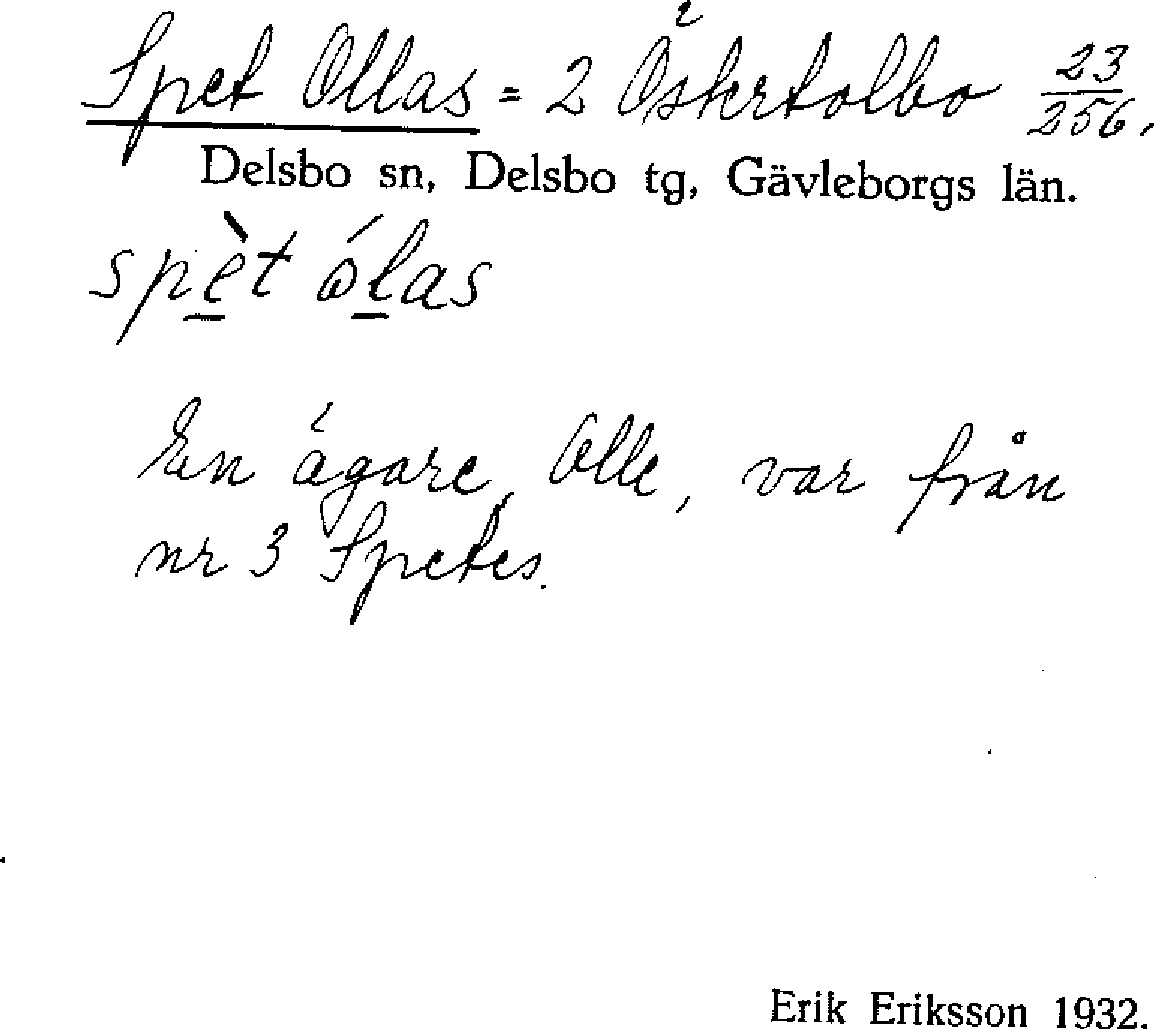 Spet Ollas = 2 Östertolbo 23/256,
Delsbo sn, Delsbo tg, Gävleborgs län.
spèt ólas
En ägare, Olle, var från
nr 3 Spetes.
Erik Eriksson 1932.